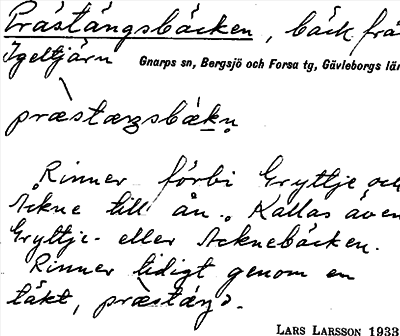 Prästängsbäcken, bäck frå
Igeltjärn Gnarps sn, Bergsjö och Forsa tg, Gävleborgs län
præstæŋsbäkn
"Rinner förbi Gryttje och
Åckne till ån." Kallas även
Gryttje- eller Åcknebäcken.
Rinner tidigt genom en
täkt, præstäŋɔ.
LARS LARSSON 1933